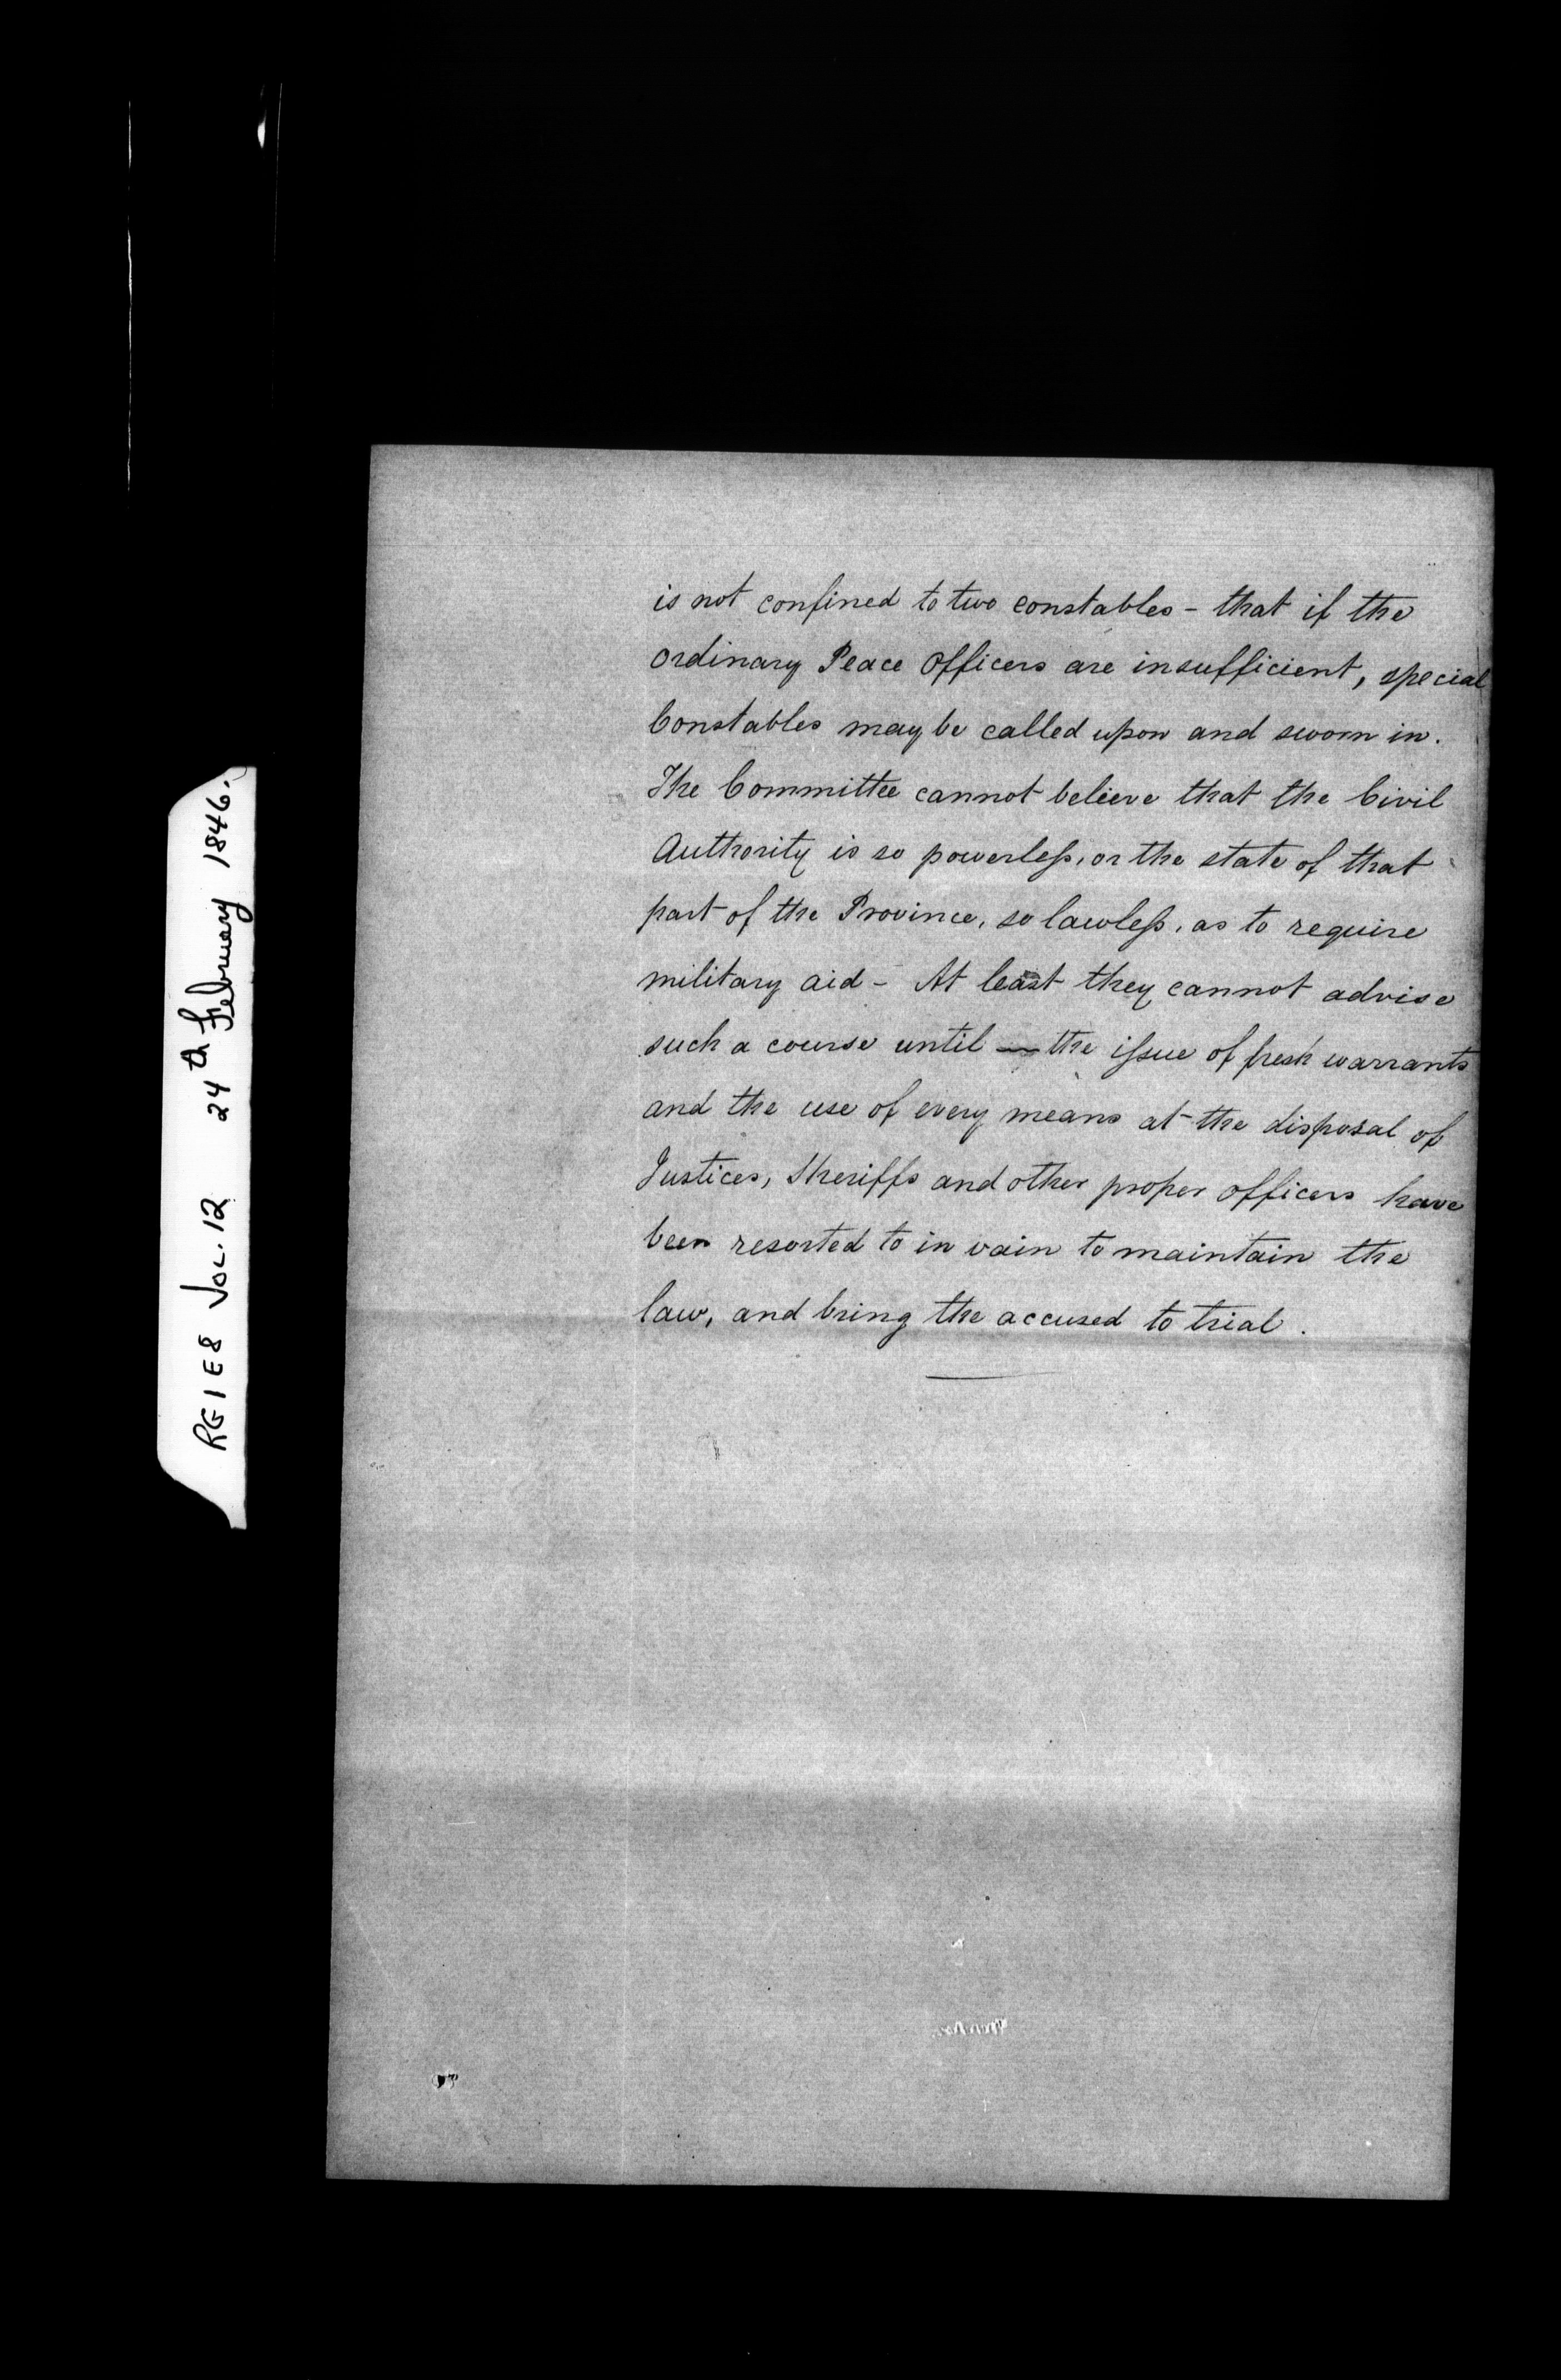 RG 1 E8 Vol. 12 24th February 1846.
is not confined to two constables - that if the
ordinary Peace Officers are insufficient, special
Constables may be called upon and sworn in.
The Committee cannot believe that the Civil
Authority is so powerleſs, or the state of that
part of the Province, so lawleſs, as to require
military aid - At least they cannot advise
such a course until — the iſsue of fresh warrants
and the use of every means at the disposal of
Justices, Sheriffs and other proper officers have
been resorted to in vain to maintain the
law, and bring the accused to trial.